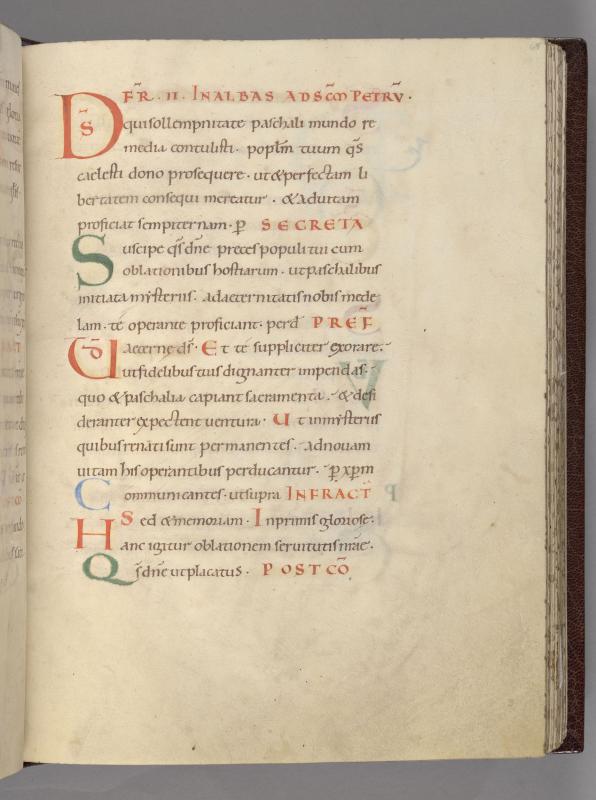 FR̄. II. IN ALBAS AD SC̄M PETRŪ.
D̄S qui sollempnitate paschali mundo re
media contulisti. popl̄m tuum qs̄
caelesti dono prosequere. ut & perfectam li
bertatem consequi mereatur. & ad uitam
proficiat sempiternam. p̄ SECRETA
Suscipe qs̄ dn̄e preces populi tui cum
oblationibus hostiarum. ut paschalibus
initiata mysteriis. ad aeternitatis nobis mede
lam. te operante proficiant. per d̄ PREF̄
UD̄ aeterne ds̄. Et te suppliciter exorare.
ut fidelibus tuis dignanter impendas.
quo & paschalia capiant sacramenta. & desi
deranter expectent uentura. Ut in mysteriis
quibus renati sunt permanentes. ad nouam
uitam his operantibus perducantur. p̄ xp̄m
Communicantes. ut supra INFRACT̄
Sed & memoriam. Inprimis gloriose.
Hanc igitur oblationem seruitutis nr̄ae.
Qs̄ dn̄e ut placatus. POST CŌ